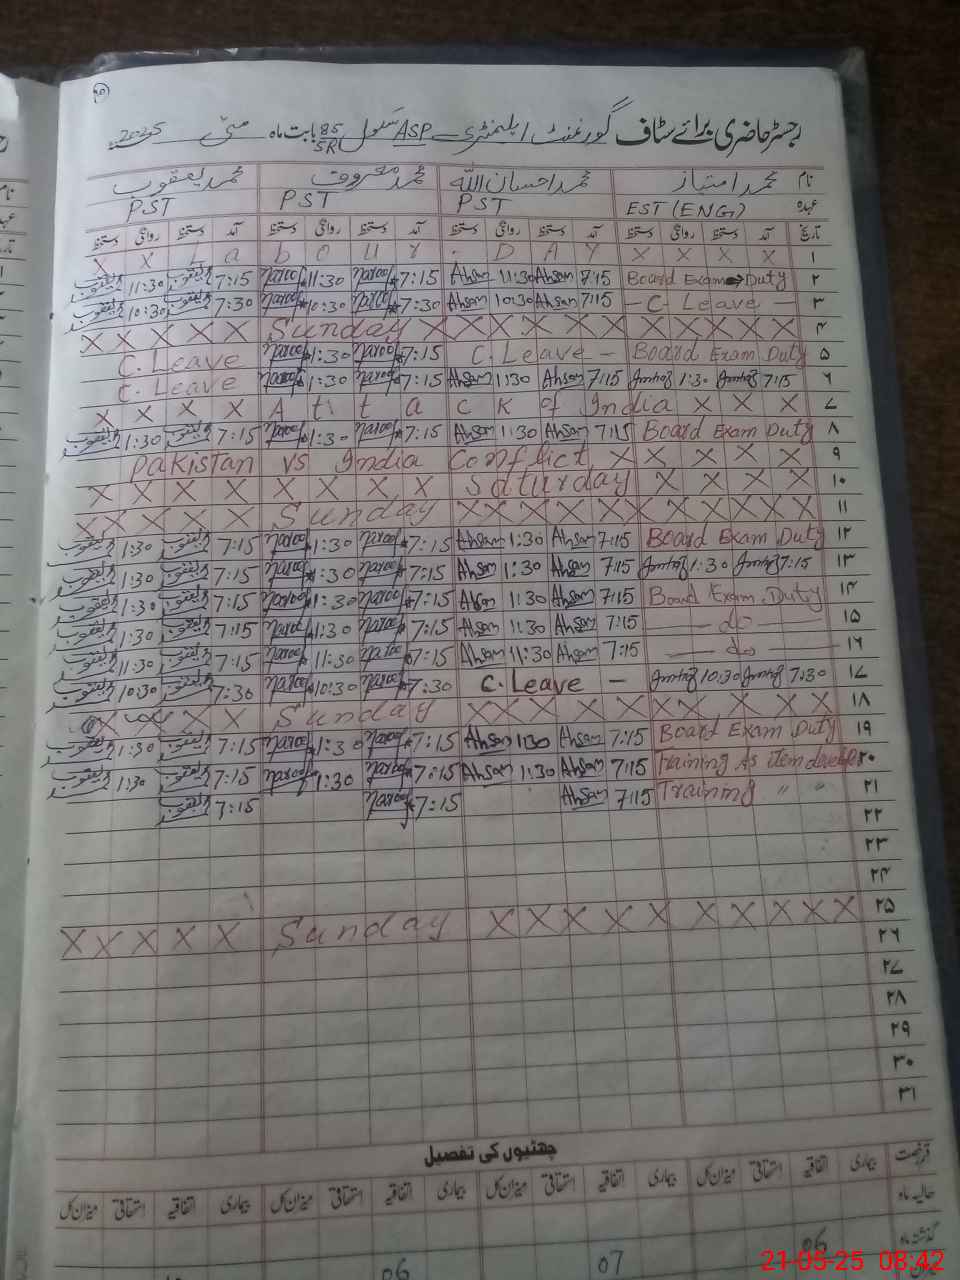 رجسٹر حاضری برائے سٹاف گورنمنٹ ایلیمنٹری ASP سکول 85/SR بابت ماہ مئی 2025
نام محمد امتیاز محمد احسان اللہ محمد معروف محمد یعقوب
عہدہ EST (ENG) PST PST PST
تاریخ آمد دستخط روانگی دستخط آمد دستخط روانگی دستخط آمد دستخط روانگی دستخط آمد دستخط روانگی دستخط
۱ X X L a b o u r . D A Y X X X X
۲ یعقوب 11:30 یعقوب 7:15 Maroof 11:30 Maroof 7:15 Ahsan 11:30 Ahsan 7:15 Board Exam Duty
۳ یعقوب 10:30 یعقوب 7:30 Maroof 10:30 Maroof 7:30 Ahsan 10:30 Ahsan 7:15 – C. Leave –
۴ X X X X X Sunday X X X X X X X X X X
۵ C. Leave Maroof 1:30 Maroof 7:15 C. Leave – Board Exam Duty
۶ C. Leave Maroof 1:30 Maroof 7:15 Ahsan 1:30 Ahsan 7:15 Imtiaz 1:30 Imtiaz 7:15
۷ X X X X Attack of India X X X
۸ یعقوب 1:30 یعقوب 7:15 Maroof 1:30 Maroof 7:15 Ahsan 11:30 Ahsan 7:15 Board Exam Duty
۹ Pakistan vs India Conflict X X X X X
۱۰ X X X X X X X X Saturday X X X X
۱۱ X X X X X Sunday X X X X X X X X X X
۱۲ یعقوب 1:30 یعقوب 7:15 Maroof 1:30 Maroof 7:15 Ahsan 1:30 Ahsan 7:15 Board Exam Duty
۱۳ یعقوب 1:30 یعقوب 7:15 Maroof 1:30 Maroof 7:15 Ahsan 1:30 Ahsan 7:15 Imtiaz 1:30 Imtiaz 7:15
۱۴ یعقوب 1:30 یعقوب 7:15 Maroof 1:30 Maroof 7:15 Ahsan 11:30 Ahsan 7:15 Board Exam Duty
۱۵ یعقوب 1:30 یعقوب 7:15 Maroof 1:30 Maroof 7:15 Ahsan 11:30 Ahsan 7:15 — do —
۱۶ یعقوب 11:30 یعقوب 7:15 Maroof 11:30 Maroof 7:15 Ahsan 11:30 Ahsan 7:15 — do —
۱۷ یعقوب 10:30 یعقوب 7:30 Maroof 10:30 Maroof 7:30 C. Leave – Imtiaz 10:30 Imtiaz 7:30
۱۸ X X X X Sunday X X X X X X X X X
۱۹ یعقوب 1:30 یعقوب 7:15 Maroof 1:30 Maroof 7:15 Ahsan 1:30 Ahsan 7:15 Board Exam Duty
۲۰ یعقوب 1:30 یعقوب 7:15 Maroof 1:30 Maroof 7:15 Ahsan 1:30 Ahsan 7:15 Training As item
۲۱ یعقوب 7:15 Maroof 7:15 Ahsan 7:15 Training " "
۲۲
۲۳
۲۴
۲۵ X X X X X Sunday X X X X X X X X X X
۲۶
۲۷
۲۸
۲۹
۳۰
۳۱
چھٹیوں کی تفصیل
قسم رخصت بیماری اتفاقیہ استحقاقی میزان کل بیماری اتفاقیہ استحقاقی میزان کل بیماری اتفاقیہ استحقاقی میزان کل بیماری اتفاقیہ استحقاقی میزان کل
حالیہ ماہ
گذشتہ ماہ 06 07 06
21-05-25 08:42